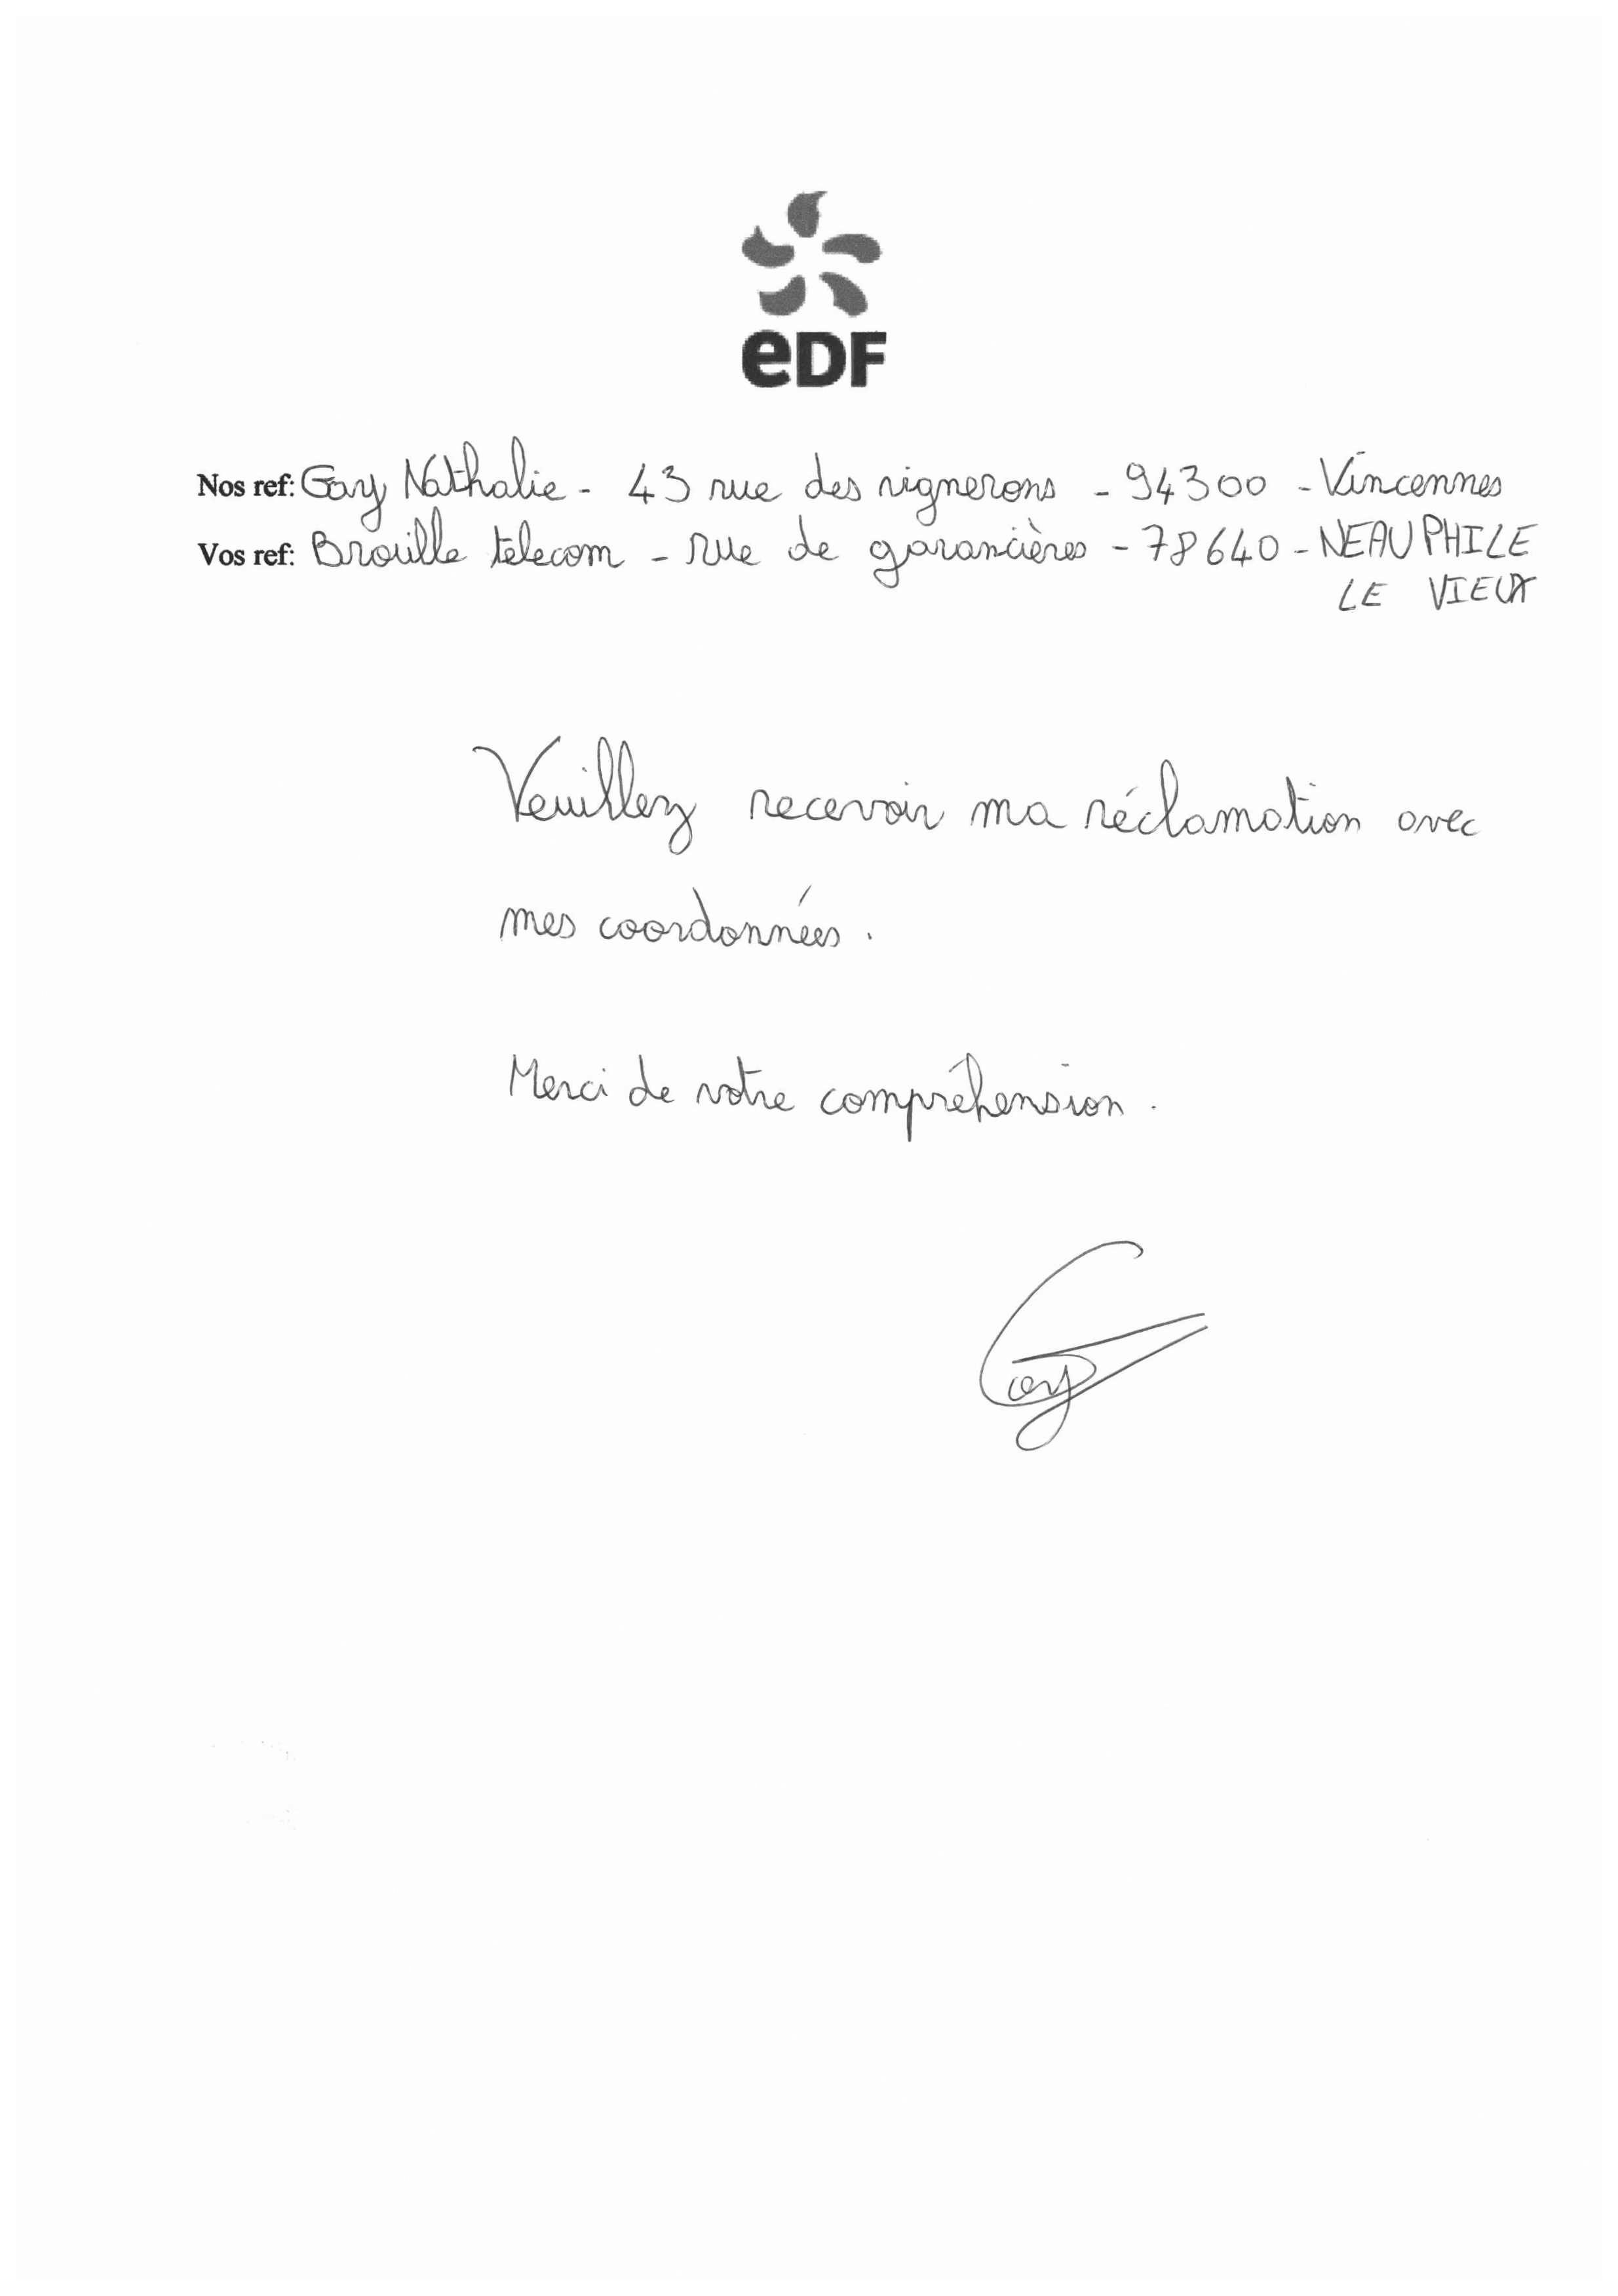 eDF
Nos ref: Gay Nathalie - 43 rue des vignerons - 94300 - Vincennes
Vos ref: Brouille telecom - Rue de garancières - 78640 - NEAUPHILE
LE VIEUX
Veuillez recevoir ma réclamation avec
mes coordonnées.
Merci de votre compréhension.
Gay